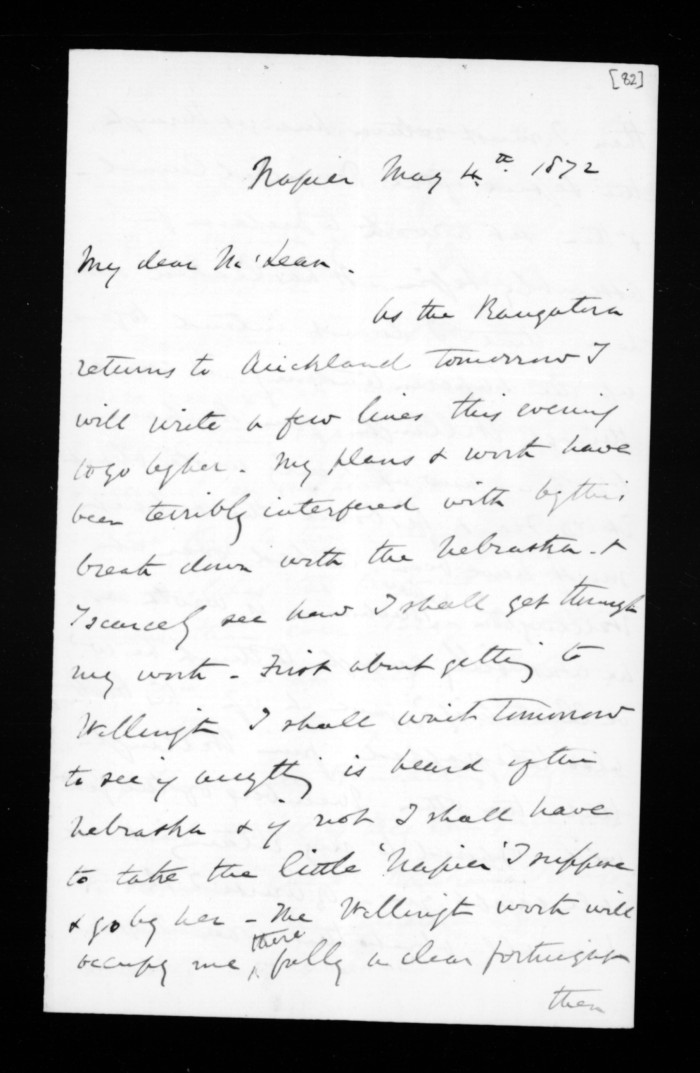 [82]
Napier May 4th. 1872
My dear McLean.
As the Rangatira
returns to Auckland tomorrow I
will write a few lines this evening
to go by her - My plans & work have
been terribly interfered with by this
break down with the Nebraska - &
I scarcely see how I shall get through
my work - First about getting to
Wellingt I shall wait tomorrow
to see if anything is heard of the
Nebraska & if not I shall have
to take the little 'Napier' I suppose
& go by her - The Wellingt work will
occupy me there fully a clear fortnight
then